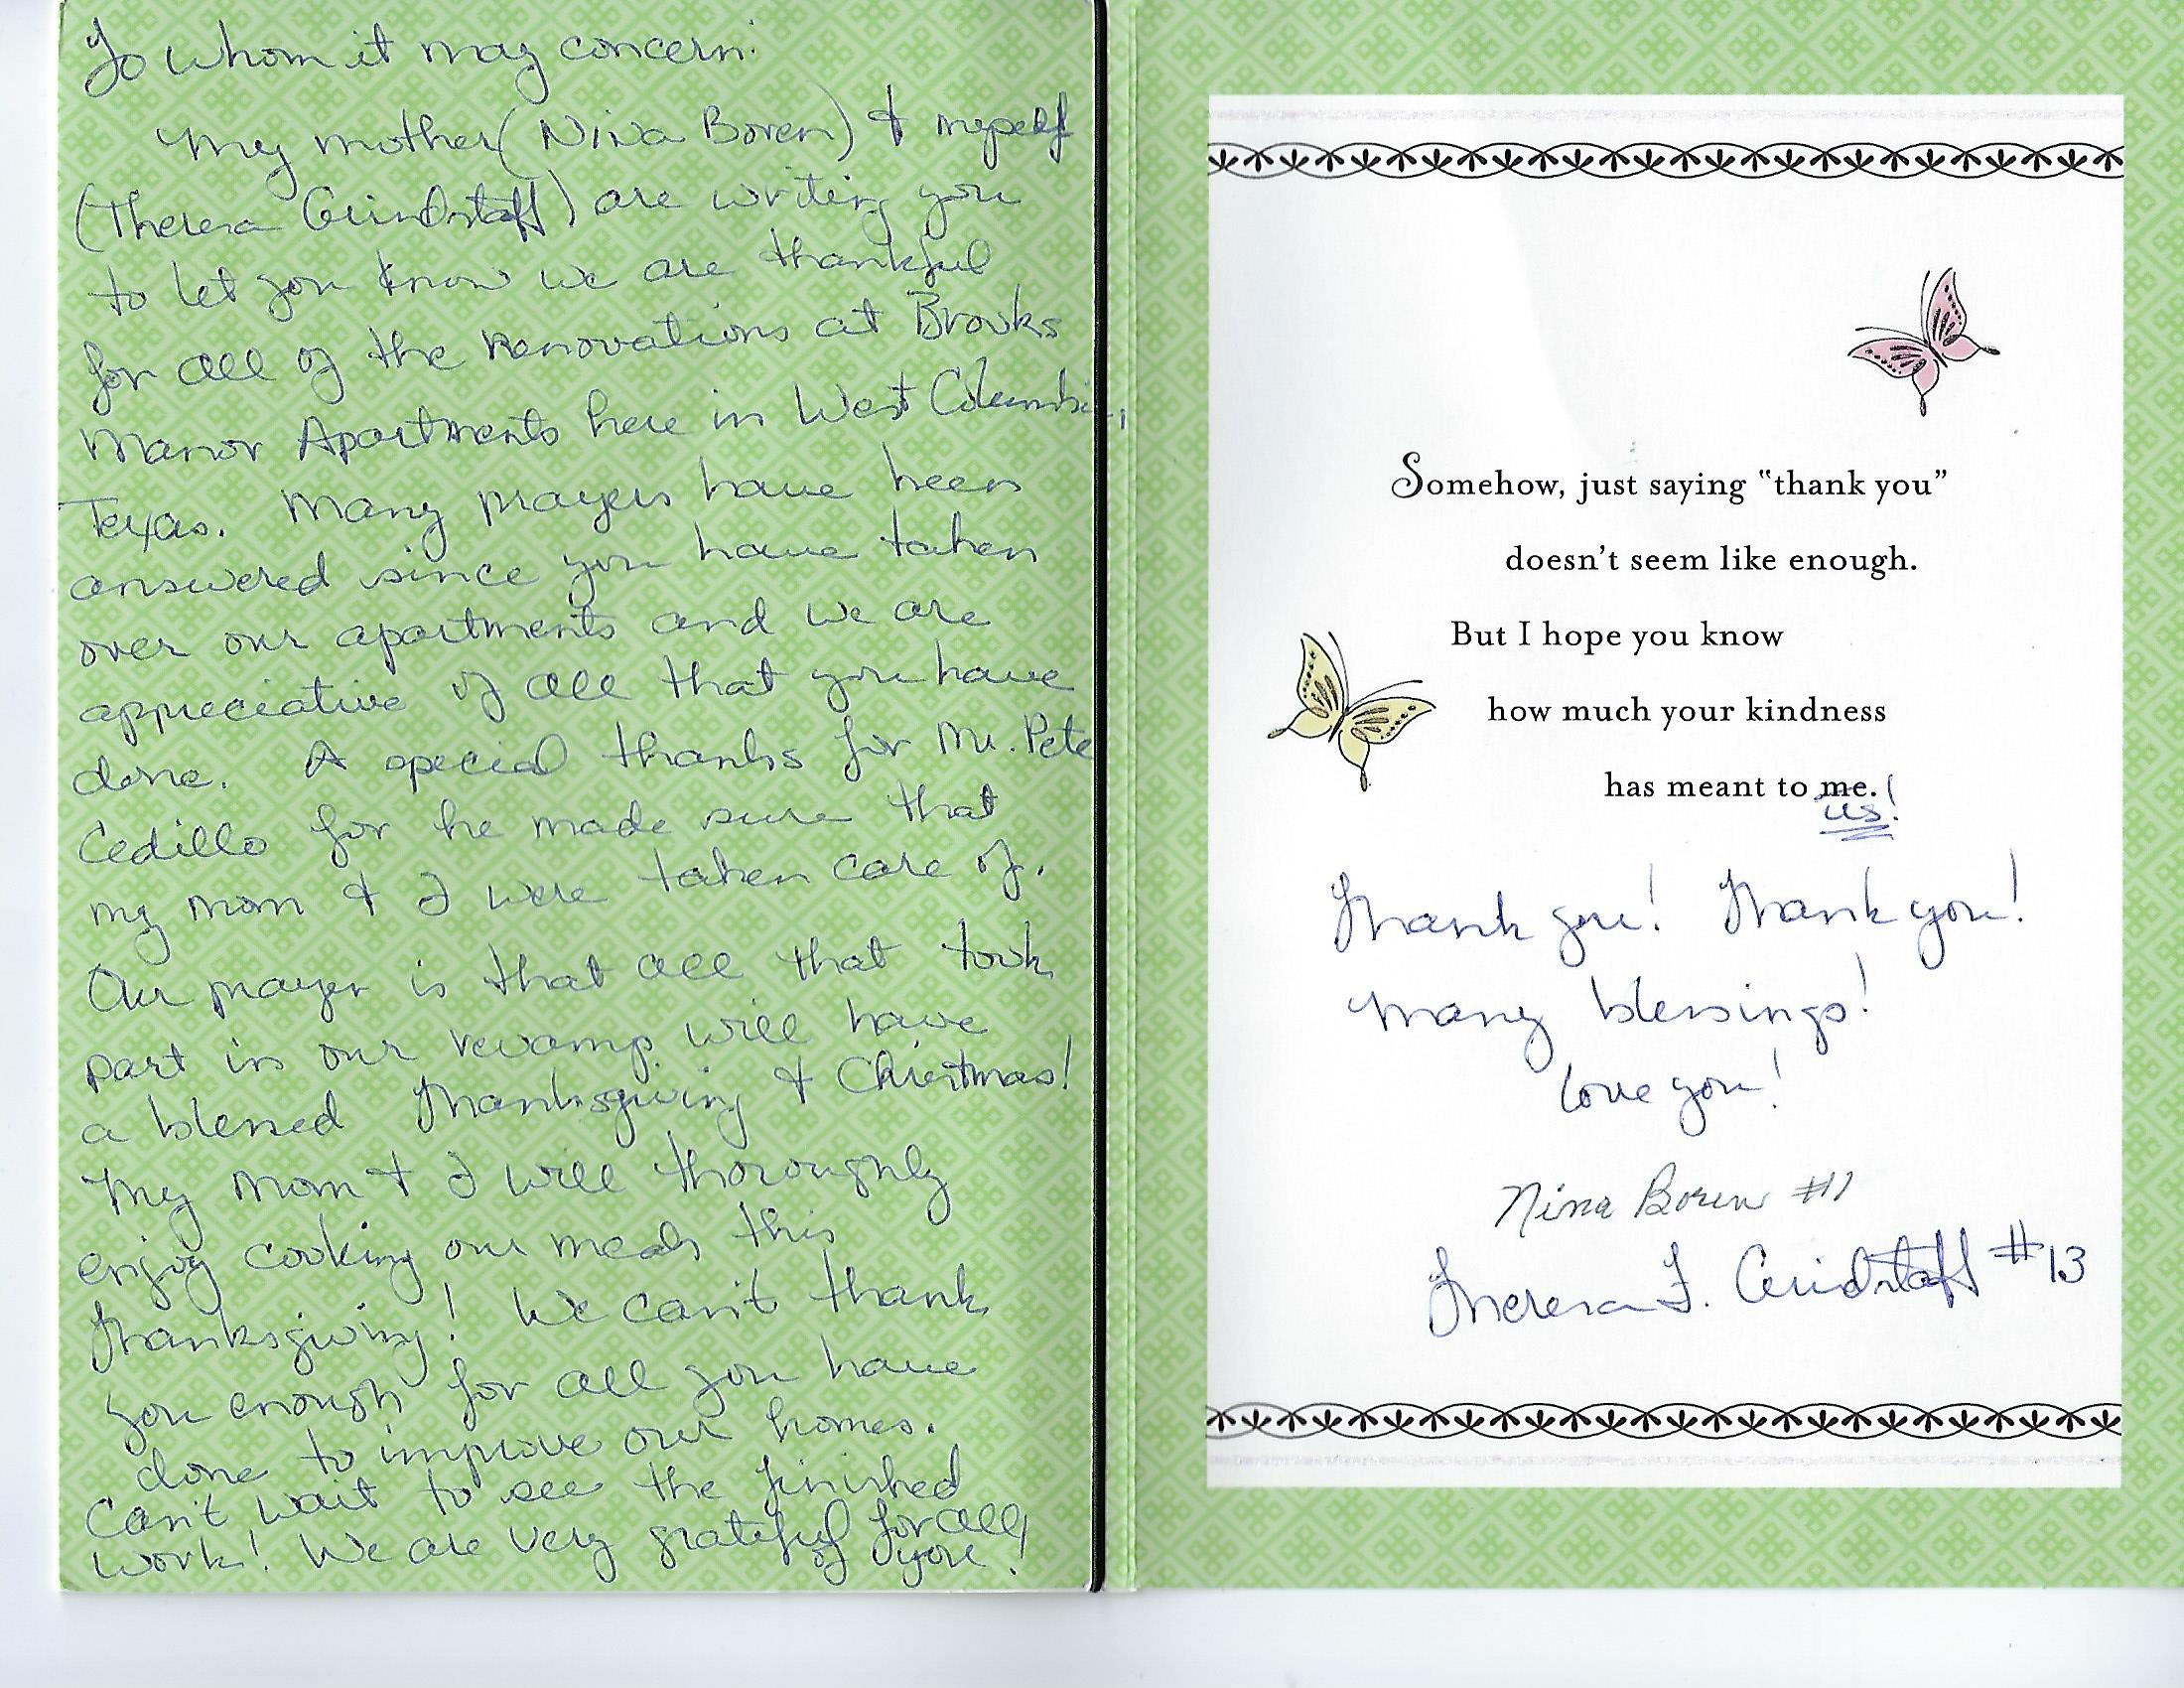 To whom it may concern:
My mother (Nina Boren) & myself
(Theresa Grindstaff) are writing you
to let you know we are thankful
for all of the renovations at Brooks
Manor Apartments here in West Columbia,
Texas. Many prayers have been
answered since you have taken
over our apartments and we are
appreciative of all that you have
done. A special thanks for Mr. Pete
Cedillo for he made sure that
my mom & I were taken care of.
Our prayer is that all that took
part in our revamp will have
a blessed Thanksgiving & Christmas!
My mom & I will thoroughly
enjoy cooking our meals this
Thanksgiving! We can't thank
you enough for all you have
done to improve our homes.
Can't wait to see the finished
work! We are very grateful for all
of you!
Somehow, just saying "thank you"
doesn't seem like enough.
But I hope you know
how much your kindness
has meant to me.!
us!
Thank you! Thank you!
Many blessings!
Love you!
Nina Boren #11
Theresa F. Grindstaff #13